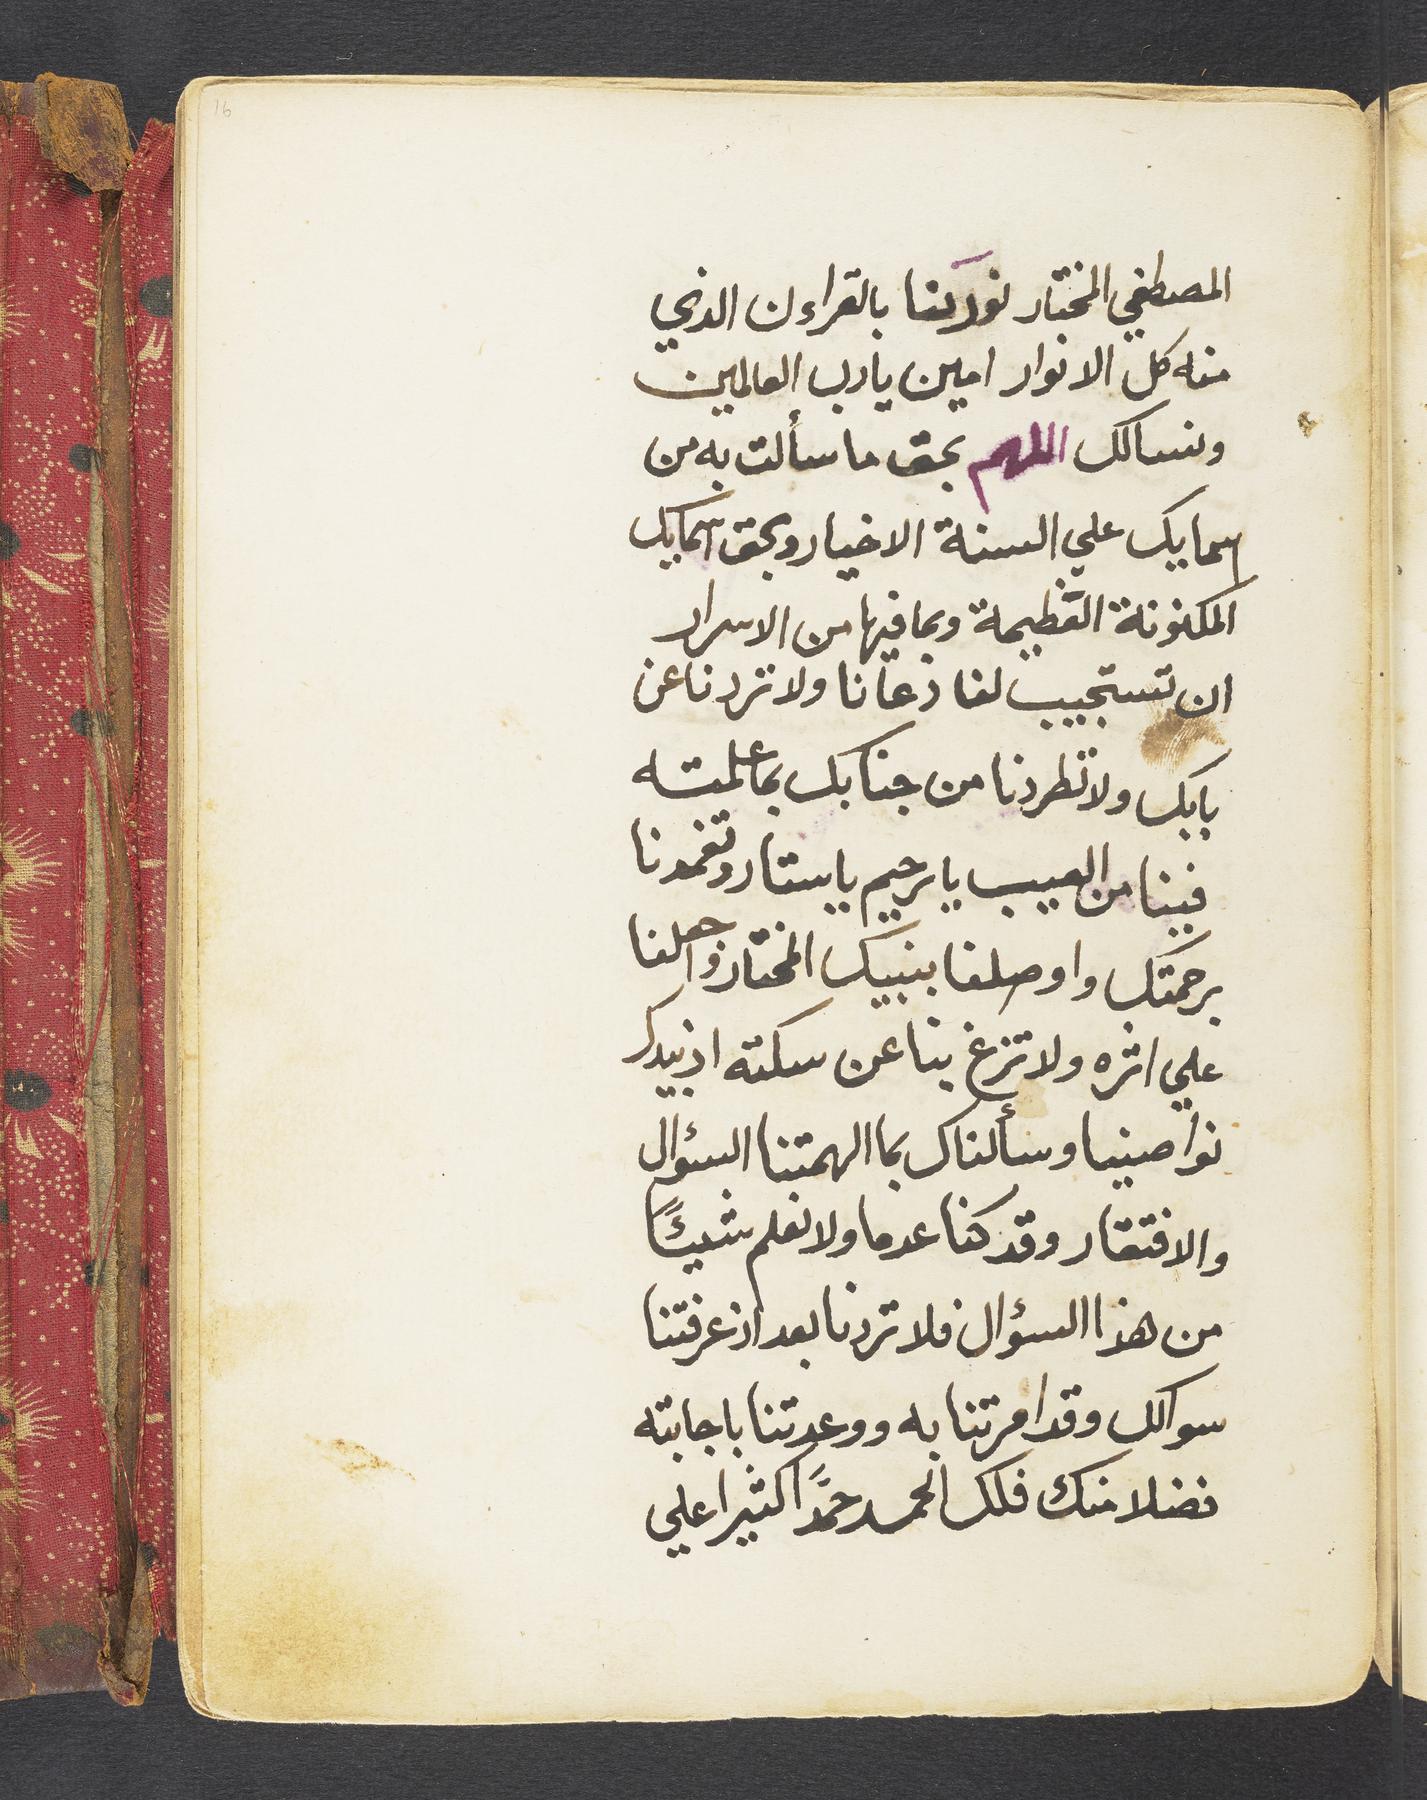 16
المصطفي المختار نور بنا بالقراءن الذي
منه كل الانوار امين يارب العالمين
ونسالك اللهم بحق ما سألت به من
اسمايك علي السنة الاخيار وبحق اسمايك
المكنونة العظيمة وبما فيها من الاسرار
ان تستجيب لنا دعانا ولا تردنا عن
بابك ولا تطردنا من جنابك بما علمته
فينا من العيب يا رحيم يا ستار وتغمدنا
برحمتك واوصلنا بنبيك المختار واجعلنا
علي اثره ولا تزغ بنا عن سكته اذ بيدك
نواصينا وسألناك بما الهمتنا السؤال
والافتقار وقد كنا عدما ولا نعلم شيئًا
من هذا السؤال فلا تردنا بعد اذ عرفتنا
سوالك وقد امرتنا به ووعدتنا باجابته
فضلا منك فلك الحمد حمدًا كثيرا علي